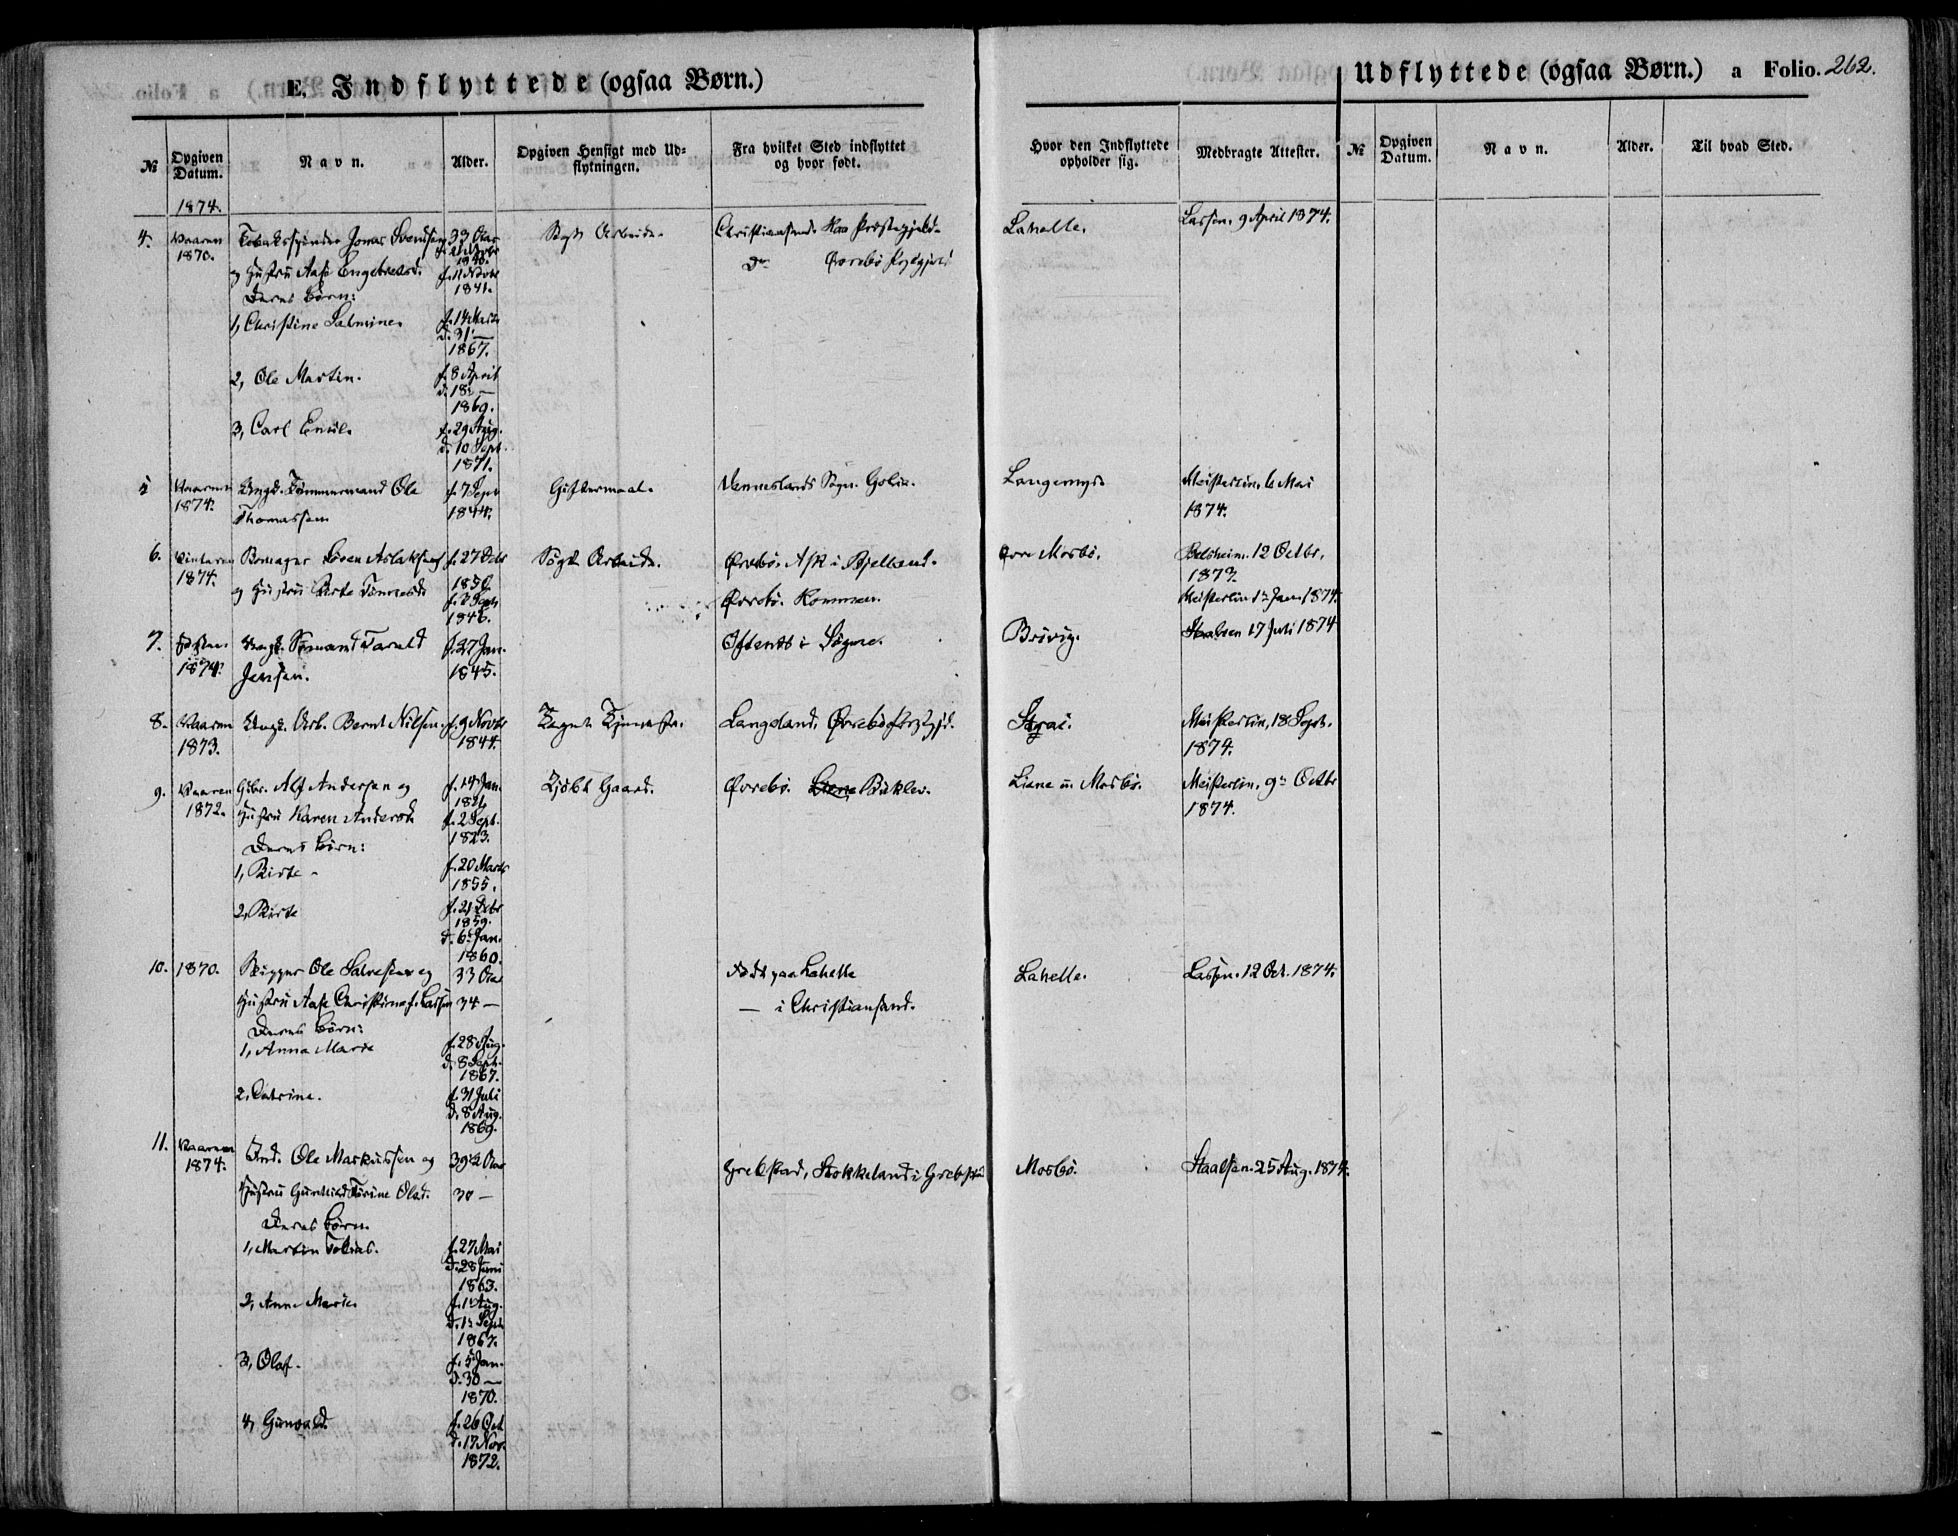 E. Indflyttede (ogsaa Børn.)
Udflyttede (ogsaa Børn.) a Folio. 262.
№ Opgiven Datum. Navn. Alder. Opgiven Hensigt med Udflytningen. Fra hvilket Sted indflyttet og hvor født. Hvor den Indflyttede opholder sig. Medbragte Attester. № Opgiven Datum. Navn. Alder. Til hvad Sted.
1874.
4. Vaaren Jonas Svendsen 33 Aar Søgt Arbeide. Christiansand. Præstegjeld. Lahelle. Lassen. 9 April 1874.
1870.
og Hustru Aase Engebretsd. Do Øvrebø
1841.
Deres Børn:
1, Christine Salmine. f. 14 Marts
d. 31 —
1867.
2, Ole Martin. f. 8 April
d. 18 —
1869.
3, Carl Emil. f. 29 Aug.
d. 10 Sept.
1871.
Vaaren Ungk. Tømmermand Ole f. 7 Sept Giftermaal. Vennesland Sogn. Langemyr. Meisterlin, 6 Mai
1874. Thomassen 1844. 1874.
6. Vinteren Søren Aslaksen f. 27 Søgt Arbeide. Øvrebø. Bjelland. Øvre Mosbø. Belsheim. 12 Octbr.
1874. 1850. 1873.
og Hustru Øvrebø. Meisterlin 1874.
1846.
7. Høsten Ungk. Sømand Tarald f. 27 Jan. Søgne. Brøvig. Staalsen 17 Juli 1874
1874. Jensen. 1845.
8. Vaaren Ungk. Arb. Bernt Nilsen. f. 9 Novbr Langeland. Øvrebø Strai. Meisterlin, 18 Sept.
1873. 1844. 1874.
9. Vaaren Gbr. Alf Andersen og Kjøbt Gaard. Øvrebø. Liene Mosbø. Meisterlin, 9 Octbr
1872. Hustru Karen Andersd. f. 2 Sept. 1874.
1823.
Deres Børn:
1, Birte f. 20 Marts
1855.
2, Birte f. 21
1859.
d. 6 Jan.
1860.
10. 1870. Skipper Ole Salvesen og 33 Aar født paa Lahelle Lahelle. Lassen. 12 Oct. 1874.
Hustru Aase Christine f. Lassen 34 — — i Christiansand.
Deres Børn:
1, Anna Marie f. 28 Aug.
d. 8 Sept.
1867.
2, Catrine. f. 31 Juli
d. 8 Aug.
1869.
11. Vaaren Ind. Ole Markussen og 39½ Aar Grebstad, Stokkeland i Mosbø. Staalsen. 25 Aug. 1874.
1874.
Hustru Olsd. 30 —
Deres Børn.
1, Martin Tobias. f. 27 Mai
d. 28 Juni
1863.
2, Anne Marie. f. 1 Aug.
d. 1 Sept
1867.
3, Olaf. f. 5 Jan.
d. 30 —
1870.
4, Gunvald. f. 26 Oct
d. 17 Nov.
1872.